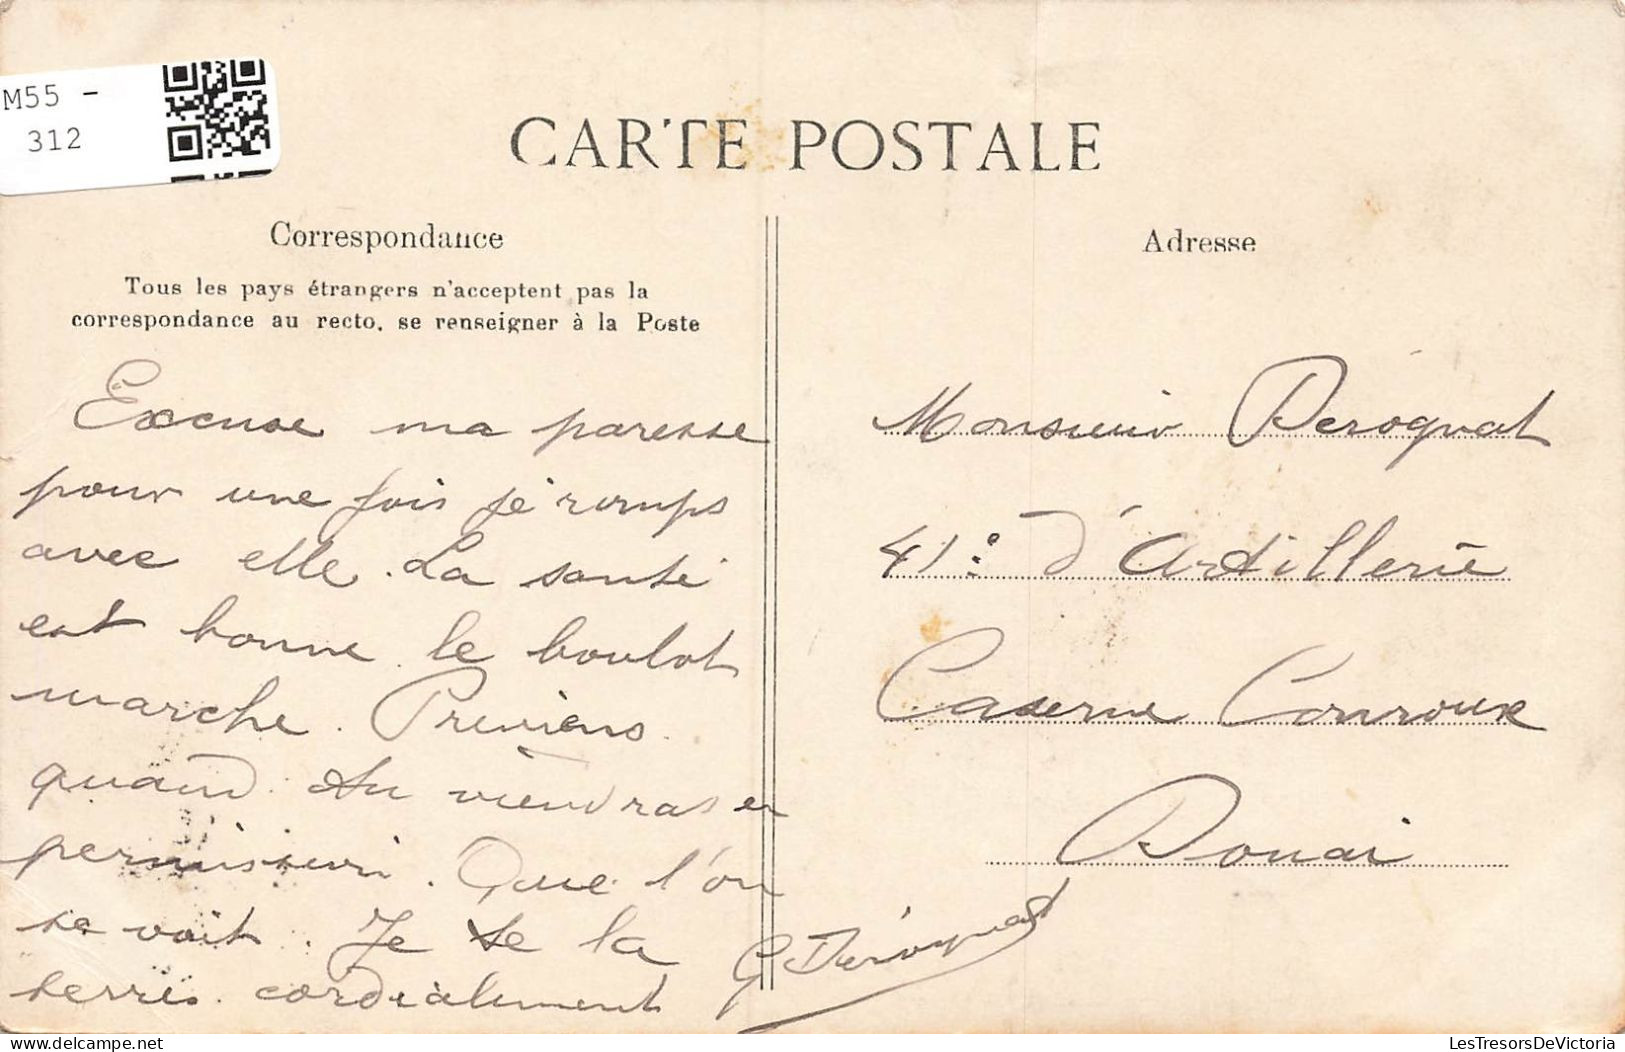 M55 -
312
CARTE POSTALE
Correspondance
Tous les pays étrangers n'acceptent pas la
correspondance au recto, se renseigner à la Poste
Excuse ma paresse
pour une fois je romps
avec elle. La santé
est bonne. le boulot
marche. Previens
quand tu viendras en
permission. Que l'on
se voit. Je te la
serres cordialement
G Derognat
Adresse
Monsieur Derognat
41e d'Artillerie
Caserne Conroux
Douai
LesTresorsDeVictoria
LesTresorsDeVictoria